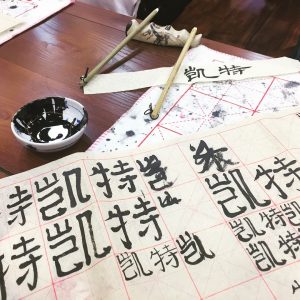 凯特
凯特
凯特
特凯特
凯特
凯特
凯特凯